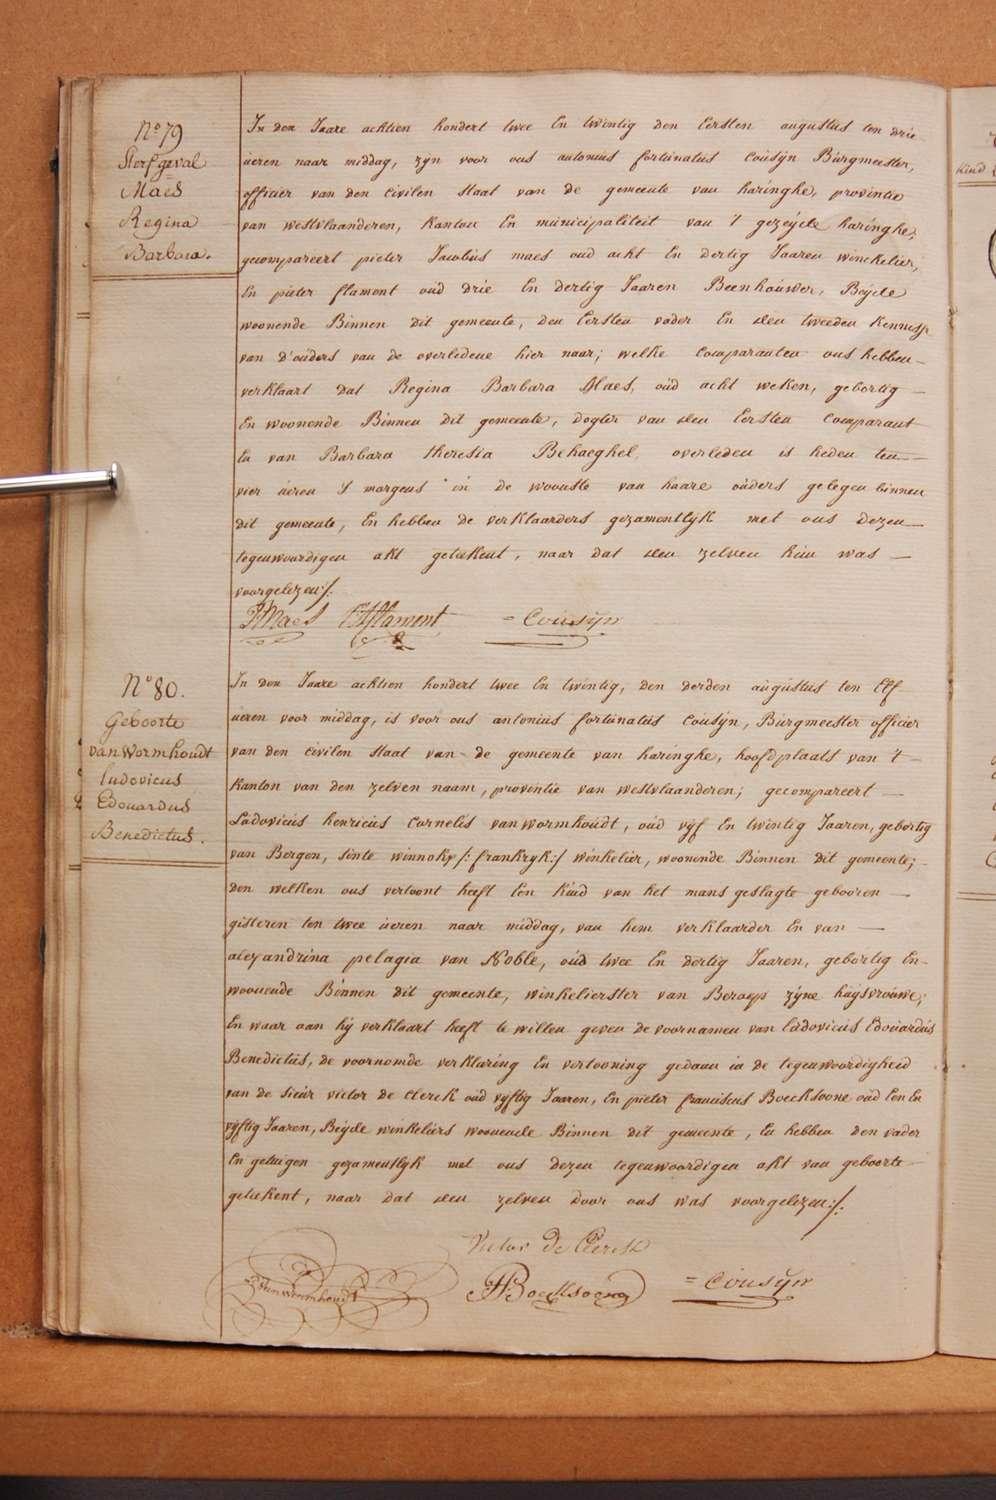 N.o 79
Sterfgeval
Maes
Regina
Barbara.
In den Jaare achtien hondert twee En twintig den Eersten augustus ten drie
ueren naar middag, zijn voor ons antonius fortunatus Cousÿn Burgmeester,
officier van den civilen staat van de gemeente van haringhe, provintie
van westvlaanderen, kanton En municipaliteit van 't gezeÿde haringhe,
gecompareert pieter Jacobus maes oud acht En dertig Jaaren winckelier,
En pieter flament oud drie En dertig Jaaren Beenhouwer, Beÿde
woonende Binnen dit gemeente, den Eersten vader En den tweeden kennisse
van d'ouders van de overledene hier naar; welke comparanten ons hebben
verklaart dat Regina Barbara Maes, oud acht weken, gebortig
En woonende Binnen dit gemeente, dogter van den Eersten Comparant
En van Barbara theresia Behaeghel, overleden is heden ten
vier ueren 's morgens in de woonste van haare ouders gelegen binnen
dit gemeente, En hebben de verklaarders gezamentlijk met ons dezen
tegenwoordigen akt geteekent, naar dat den zelven hun was
voorgelezen:/:
PJMaes Flament = Cousÿn
N.o 80.
Geboorte
van Wormhoudt
Ludovicus
Edouardus
Benedictus.
In den Jaare achtien hondert twee En twintig, den derden augustus ten Elf
ueren voor middag, is voor ons antonius fortunatus Cousÿn, Burgmeester officier
van den Civilen staat van de gemeente van haringhe, hoofdplaats van 't
kanton van den zelven naam, provintie van westvlaanderen; gecompareert
Ludovicus henricus Cornelis vanwormhoudt, oud vÿf En twintig Jaaren, gebortig
van Bergen, sinte winnokx/: frankryk:/ winkelier, woonende Binnen dit gemeente;
den welken ons vertoont heeft Een kind van het mans geslagte gebooren
gisteren ten twee ueren naar middag, van hem verklaarder En van
alexandrina pelagia van Noble, oud twee En dertig Jaaren, gebortig En
woonende Binnen dit gemeente, winkelierster van Beroep zÿne huÿsvrouwe;
En waar aan hÿ verklaart heeft te willen geven de voornamen van Ludovicus Edouardus
Benedictus, de voornomde verklaring En vertooning gedaan in de tegenwoordigheid
van de sieur victor de Clerck oud vÿftig Jaaren, En pieter franciscus Boecksoone oud Een En
vÿftig Jaaren, Beÿde winkeliers woonende Binnen dit gemeente, En hebben den vader
En getuigen gezamentlÿk met ons dezen tegenwoordigen akt van geboorte
geteekent, naar dat den zelven door ons was voorgelezen:/:
Victor De Clerck
Vanwormhoudt Boecksoone = Cousÿn
kind